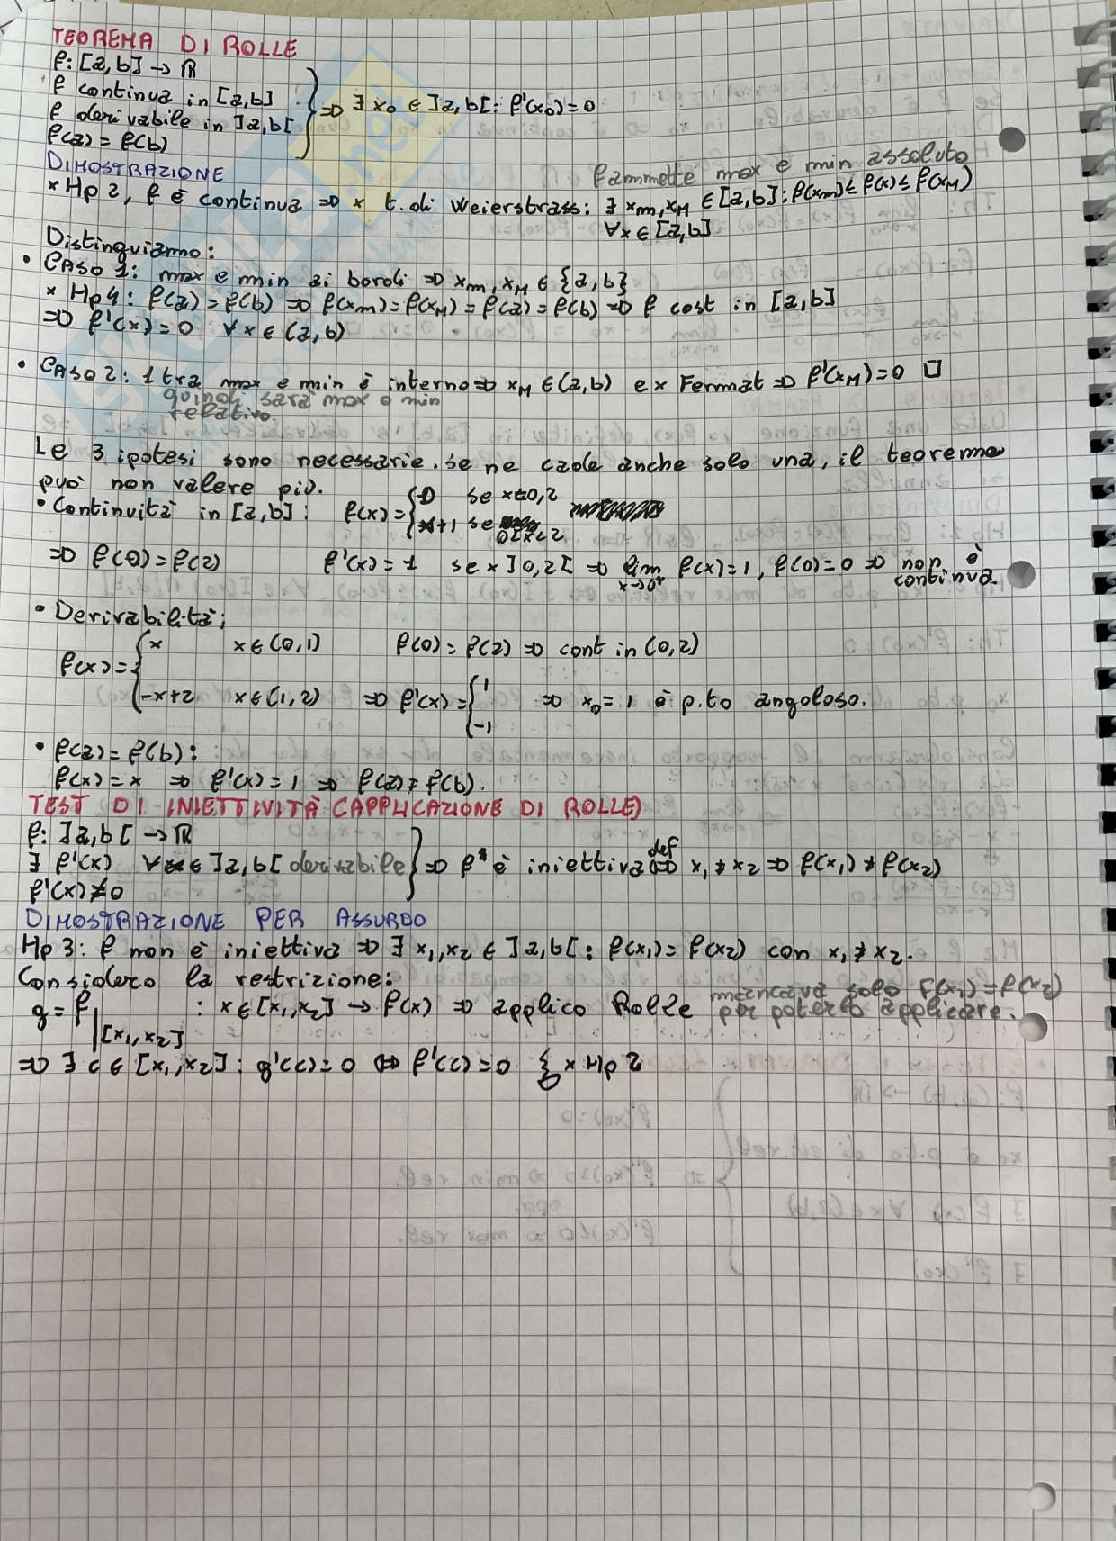 TEOREMA DI ROLLE
f: [a,b] → ℝ
f continua in [a,b]
f derivabile in ]a,b[
f(a) = f(b)
⇒ ∃ x₀ ∈ ]a,b[ : f'(x₀) = 0
DIMOSTRAZIONE
f ammette max e min assoluto
x Hp 2, f è continua ⇒ x t. di Weierstrass: ∃ xm, xM ∈ [a,b] : f(xm) ≤ f(x) ≤ f(xM)
∀x ∈ [a,b]
Distinguiamo:
• CASO 1: max e min ai bordi ⇒ xm, xM ∈ {a,b}
x Hp4: f(a) = f(b) ⇒ f(xm) = f(xM) = f(a) = f(b) ⇒ f cost in [a,b]
⇒ f'(x) = 0 ∀x ∈ (a,b)
• CASO 2: 1 tra max e min è interno ⇒ xM ∈ (a,b) e x Fermat ⇒ f'(xM) = 0 □
quindi sarà max o min
relativo
Le 3 ipotesi sono necessarie. Se ne cade anche solo una, il teorema
può non valere più.
• Continuità in [a,b]: f(x) = { 0 se x=0,2
x+1 se 0<x<2
⇒ f(0) = f(2) f'(x) = 1 se x ]0,2[ ⇒ lim x→0⁺ f(x) = 1, f(0) = 0 ⇒ non è
continua
• Derivabilità:
f(x) = { x x ∈ (0,1) f(0) = f(2) ⇒ cont in (0,2)
-x+2 x ∈ (1,2) ⇒ f'(x) = { 1 -1 ⇒ x₀ = 1 è p.to angoloso.
• f(a) = f(b):
f(x) = x ⇒ f'(x) = 1 ⇒ f(a) ≠ f(b).
TEST DI INIETTIVITÀ (APPLICAZIONE DI ROLLE)
f: ]a,b[ → ℝ
∃ f'(x) ∀x ∈ ]a,b[ derivabile
f'(x) ≠ 0
⇒ f è iniettiva def⇔ x₁ ≠ x₂ ⇒ f(x₁) ≠ f(x₂)
DIMOSTRAZIONE PER ASSURDO
Hp 3: f non è iniettiva ⇒ ∃ x₁,x₂ ∈ ]a,b[ : f(x₁) = f(x₂) con x₁ ≠ x₂.
Considero la restrizione:
g = f|[x₁,x₂] : x ∈ [x₁,x₂] → f(x) ⇒ applico Rolle mancava solo f(x₁) = f(x₂)
per poterlo applicare.
⇒ ∃ c ∈ [x₁,x₂] : g'(c) = 0 ⇔ f'(c) = 0 x Hp 2